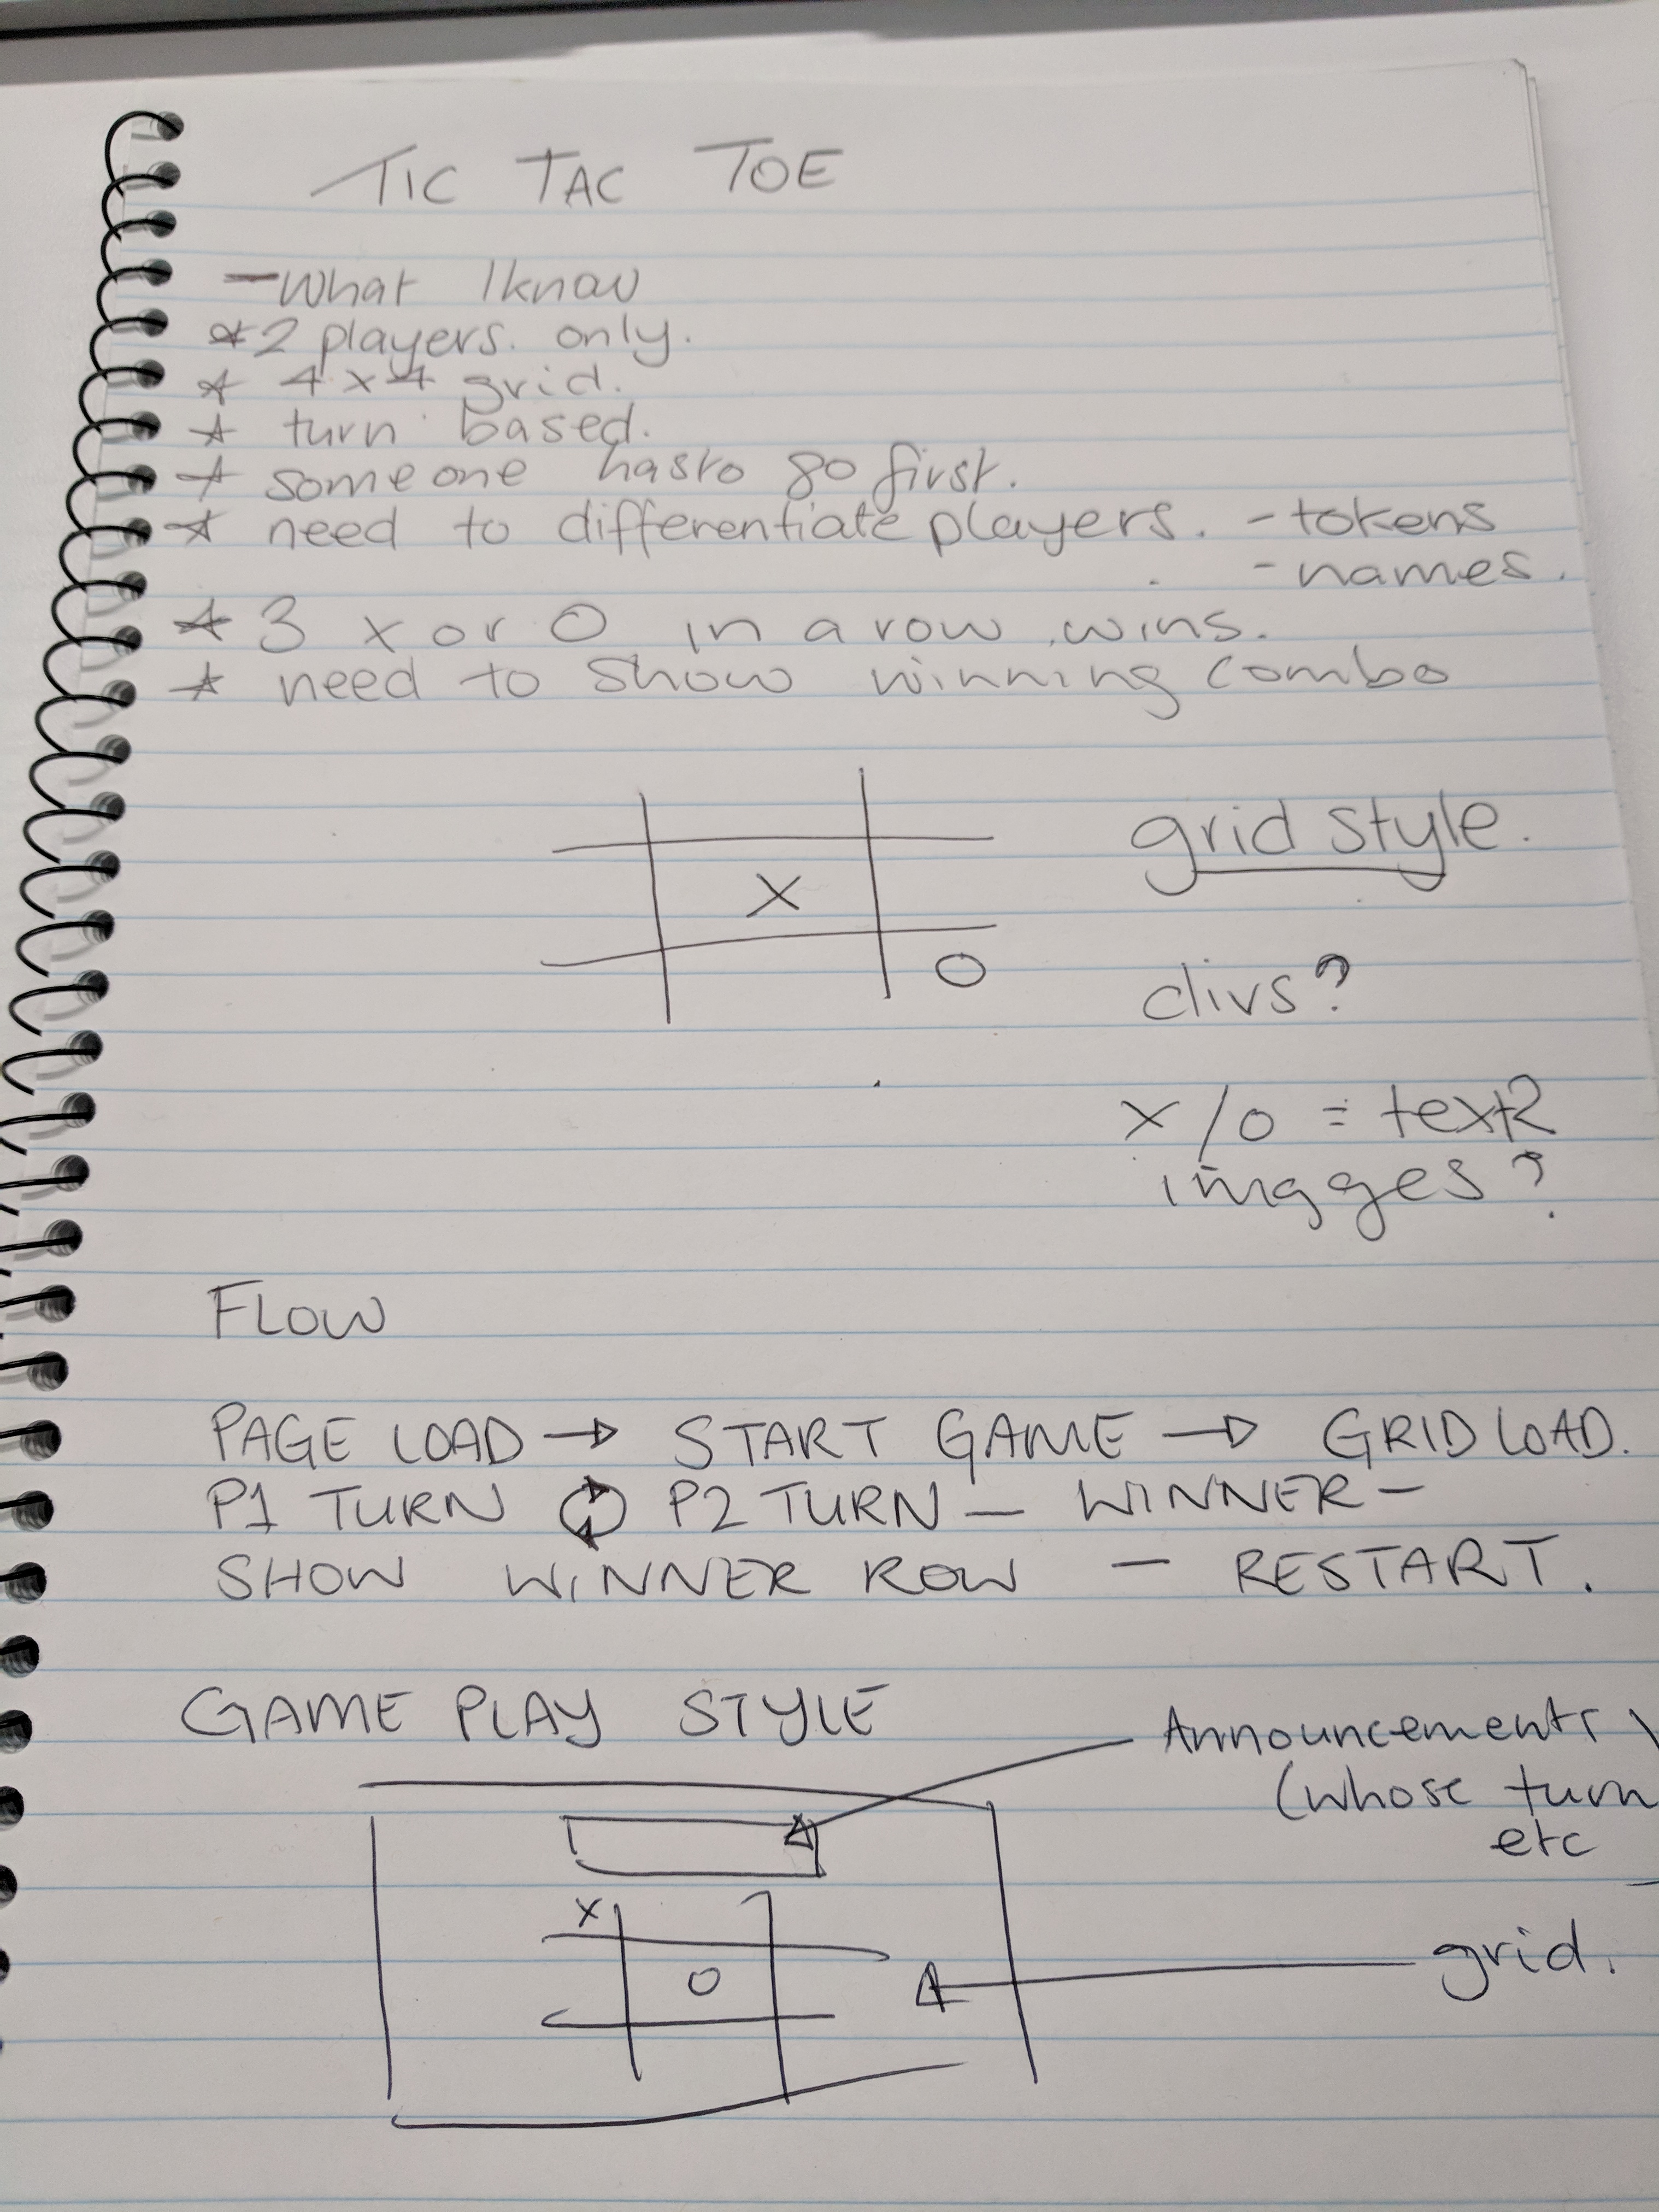 TIC TAC TOE
- What I know
* 2 players. only.
* 4 x 4 grid.
* turn based.
* someone has to go first.
* need to differentiate players. - tokens
- names.
* 3 x or O in a row wins.
* need to show winning combo
grid style.
X
O
divs?
x / o = text?
images?
FLOW
PAGE LOAD → START GAME → GRID LOAD.
P1 TURN P2 TURN — WINNER —
SHOW WINNER ROW — RESTART.
GAME PLAY STYLE
Announcements
(whose turn
etc
X
O
grid.